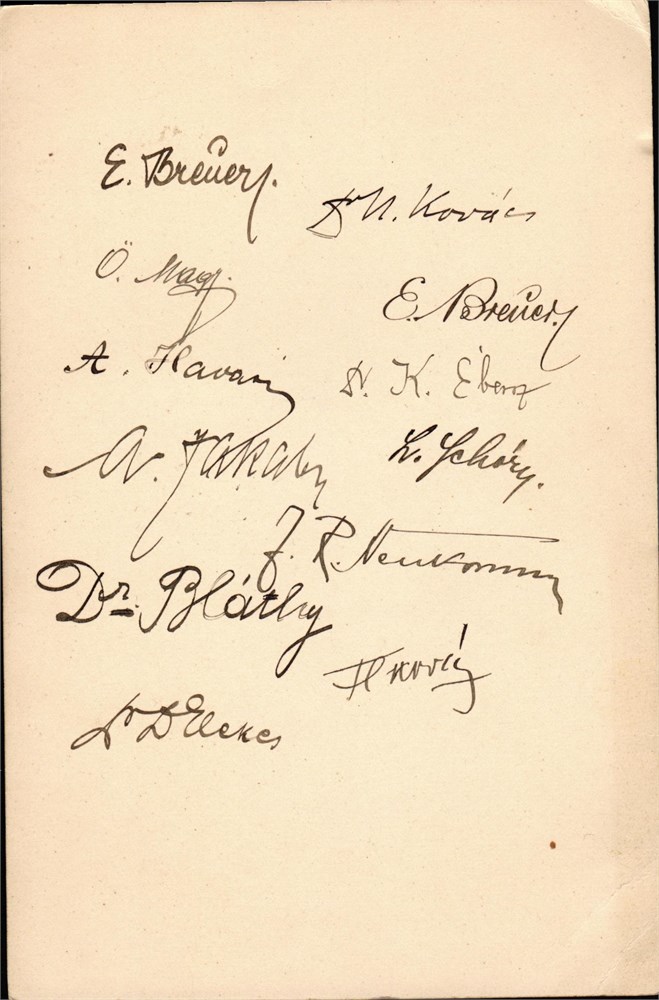 E. Breuer
Dr N. Kovács
Ö. Magy.
E. Breuer.
A. Havasi
Dr. K. Ébersz
A. Jakaby
L. Schóry.
J. R. Neukomm
Dr. Bláthy
Dr D Elekes